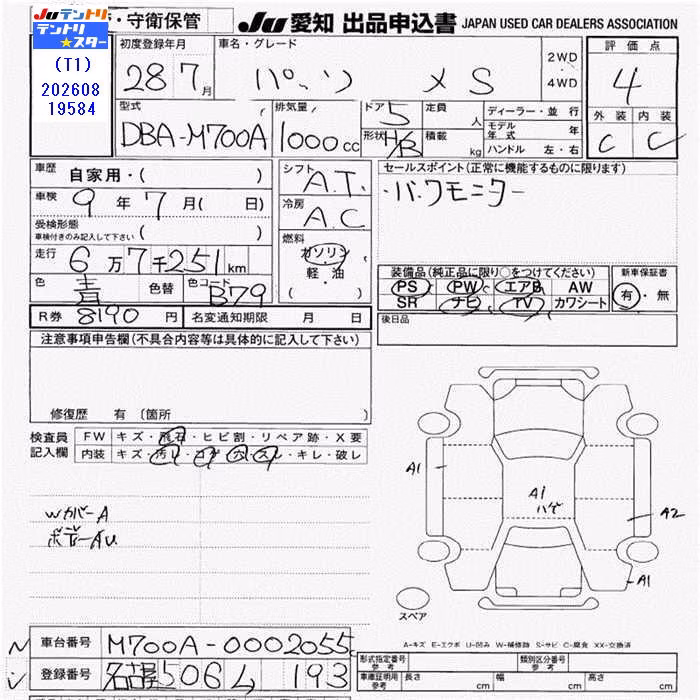 Ju テントリ
テントリ★スター
(T1)
202608
19584
・守衛保管
JU 愛知 出品申込書 JAPAN USED CAR DEALERS ASSOCIATION
初度登録年月
28 7月
車名・グレード
パッソ X S
2WD
・
4WD
評価点
4
外装 内装
C C
型式
DBA-M700A
排気量
1000cc
ドア 5
形状 H/B
定員 人
積載 kg
ディーラー・並行
モデル年式 年
ハンドル 左・右
車歴 自家用・( )
車検 9年7月( 日)
受検形態
車検付きのみ記入して下さい ( )
走行 6万7千251km
色 青 色替 色コード B79
シフト A.T.
冷房 A.C
燃料
ガソリン
軽・油
( )
セールスポイント(正常に機能するものに限ります)
・バックモニター
装備品(純正品に限り○をつけてください)
PS PW エアB AW
SR ナビ TV カワシート
新車保証書
有・無
R券 8190円 名変通知期限 月 日
後日品
注意事項申告欄(不具合内容等は具体的に記入して下さい)
修復歴 有(箇所 )
検査員
記入欄
FW キズ・飛石・ヒビ割・リペア跡・X要
内装 キズ・汚レ・コゲ・穴・スレ・キレ・破レ
WカバーA
ボデーAU
A1
A1
ハゲ
A2
A1
スペア
A-キズ E-エクボ U-凹み W-補修跡 S-サビ C-腐食 XX-交換済
車台番号 M700A-0002055
登録番号 名古屋506ム193
形式指定番号
参考
類別区分番号
参考
車庫証明用
参考
長さ cm 幅 cm 高さ cm